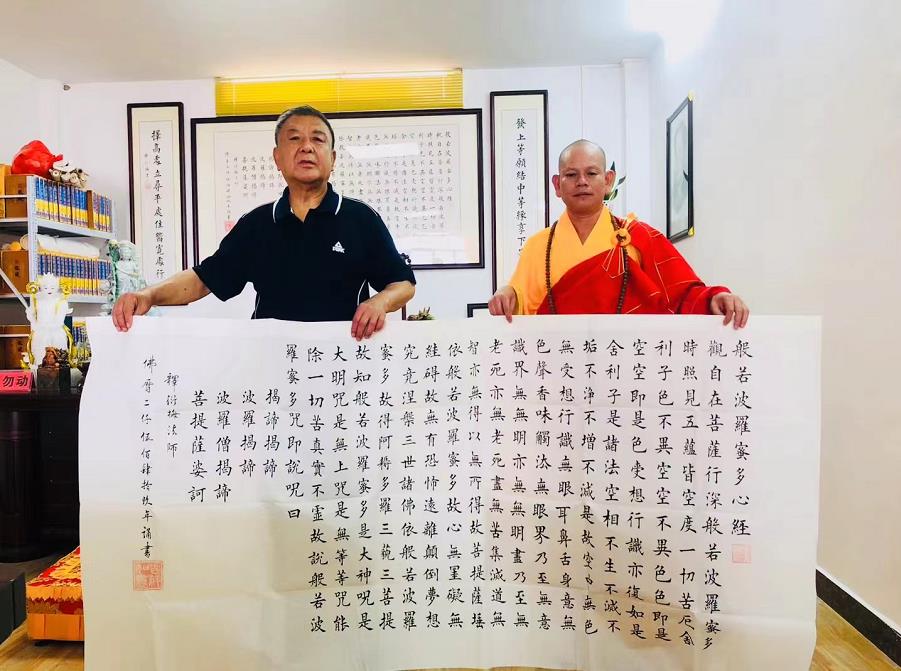 擇高處立尋平處住向寬處行
發上等願結中等緣享下
PEAK
勿动
般若波羅蜜多心經
觀自在菩薩行深般若波羅蜜多
時照見五蘊皆空度一切苦厄舍
利子色不異空空不異色色即是
空空即是色受想行識亦復如是
舍利子是諸法空相不生不滅不
垢不淨不增不減是故空中無色
無受想行識無眼耳鼻舌身意無
色聲香味觸法無眼界乃至無意
識界無無明亦無無明盡乃至無
老死亦無老死盡無苦集滅道無
智亦無得以無所得故菩提薩埵
依般若波羅蜜多故心無罣礙無
絓碍故無有恐怖遠離顛倒夢想
究竟涅槃三世諸佛依般若波羅
蜜多故得阿耨多羅三藐三菩提
故知般若波羅蜜多是大神咒是
大明咒是無上咒是無等等咒能
除一切苦真實不虛故說般若波
羅蜜多咒即說咒曰
揭諦揭諦
波羅揭諦
波羅僧揭諦
菩提薩婆訶
釋衍梅法師
佛曆二仟伍佰肆拾玖年誦書